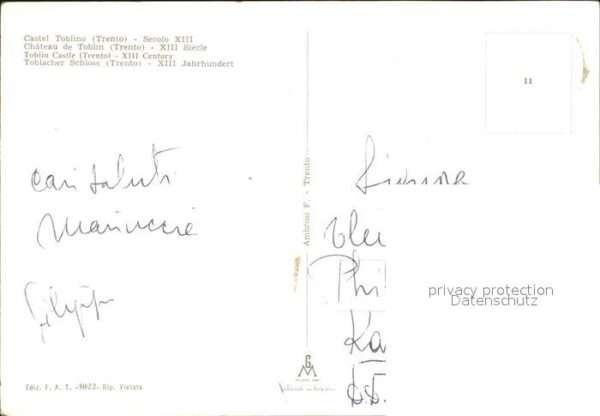 Castel Toblino (Trento) - Secolo XIII
Château de Toblin (Trento) - XIII Siècle
Toblin Castle (Trento) - XIII Century
Toblacher Schloss (Trento) - XIII Jahrhundert
11
Cari saluti
Mariuccia
Filippo
Ambrosi F. - Trento
Phi
Ka
privacy protection
Datenschutz
Ediz. F. A. T. -3022- Rip. Vietata